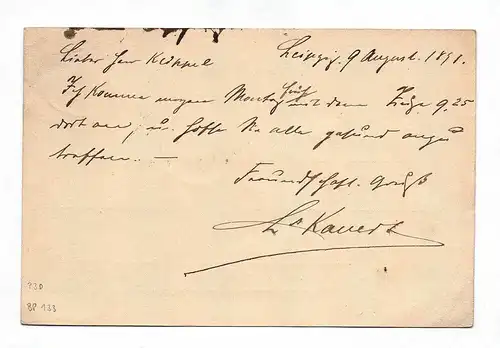 Leipzig, 9 August. 1891.
Lieber Herr Knöppel
früh
Ich komme morgen Montag mit dem Zuge 9.25
dort an, u. hoffe Sie alle gesund anzu
treffen. —
Freundschaftl. Gruß
Kauert
P30
BP 133